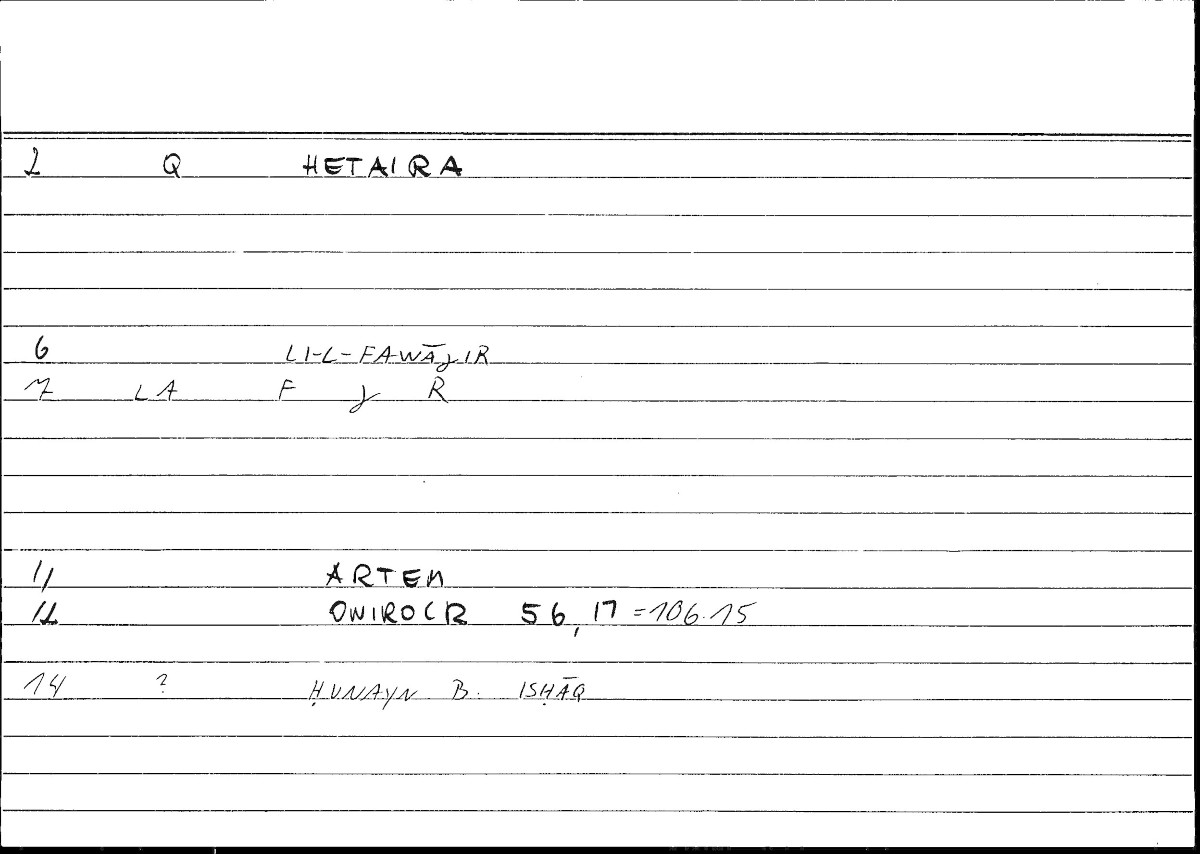 2 Q HETAIRA
6 LI-L-FAWĀJIR
7 LA F J R
11 ARTEM
12 ONIROCR 56,17 =106.15
14 ? ḤUNAYN B. ISḤĀQ